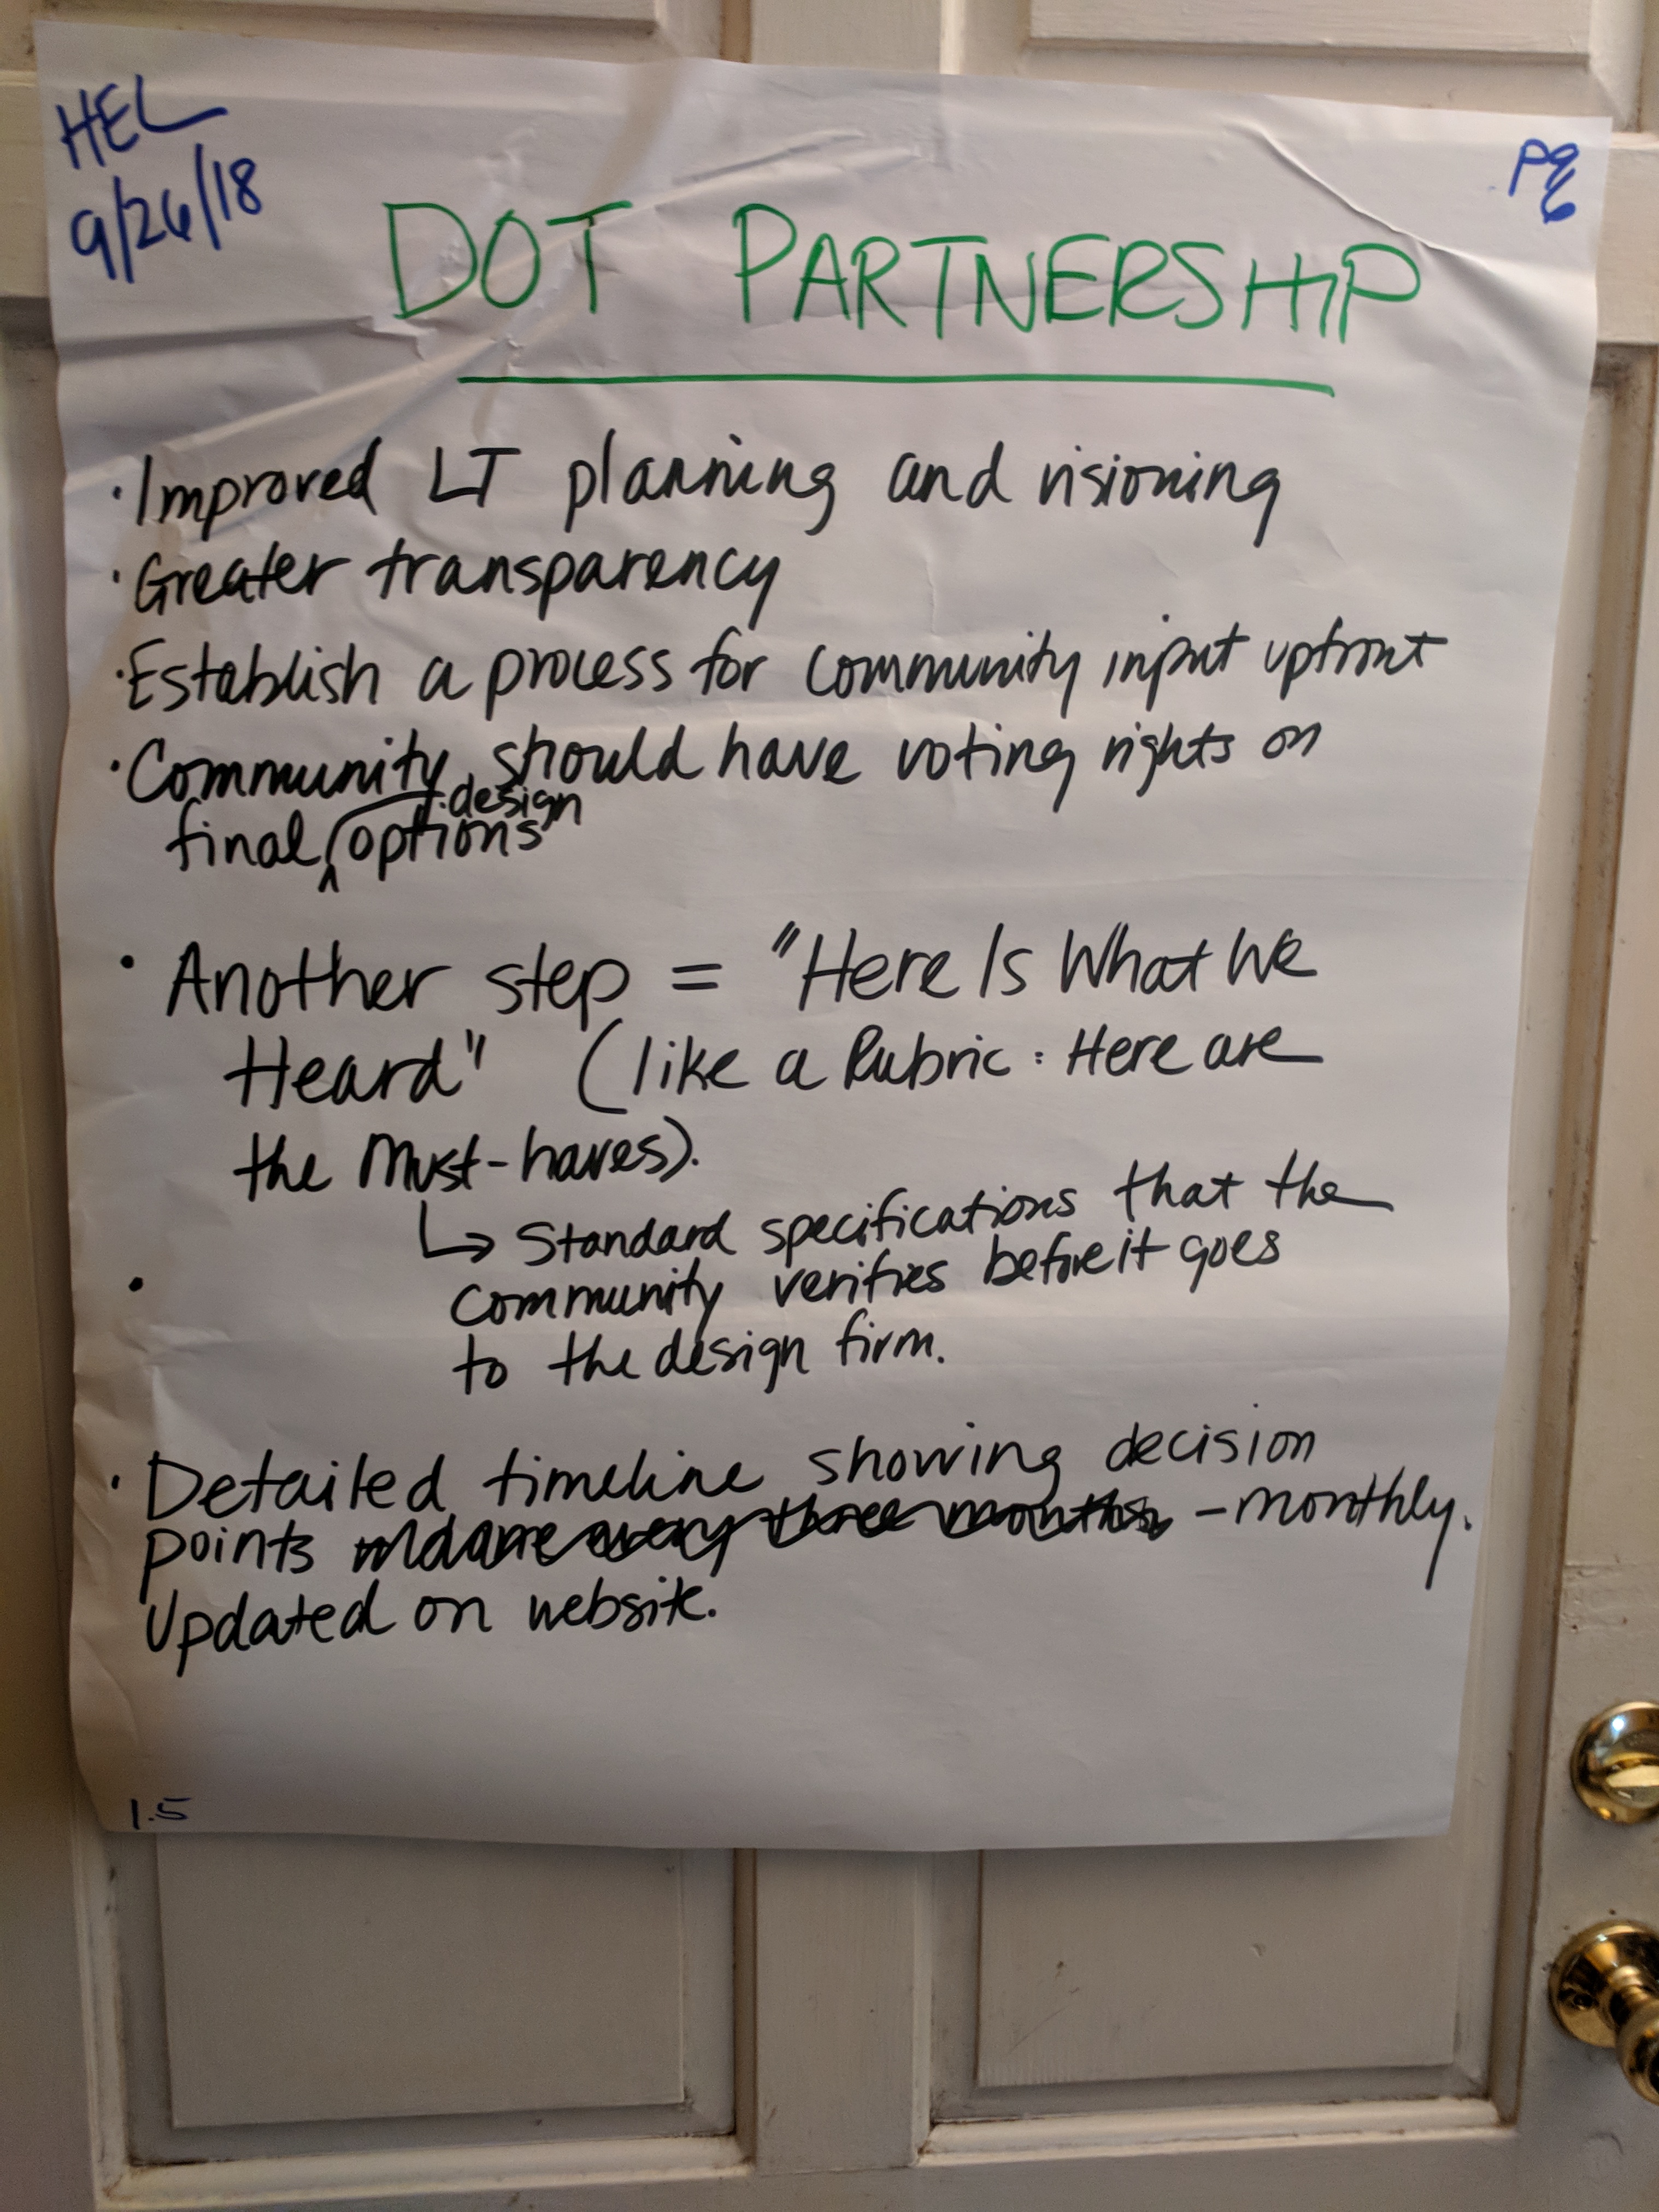 HEL
9/26/18
Pg 6
DOT PARTNERSHIP
· Improved LT planning and visioning
· Greater transparency
· Establish a process for community input upfront
· Community should have voting rights on
final design options
· Another step = "Here Is What We
Heard" (like a Rubric: Here are
the Must-haves).
↳ Standard specifications that the
· community verifies before it goes
to the design firm.
· Detailed timeline showing decision
points every three months - monthly.
Updated on website.
1.5